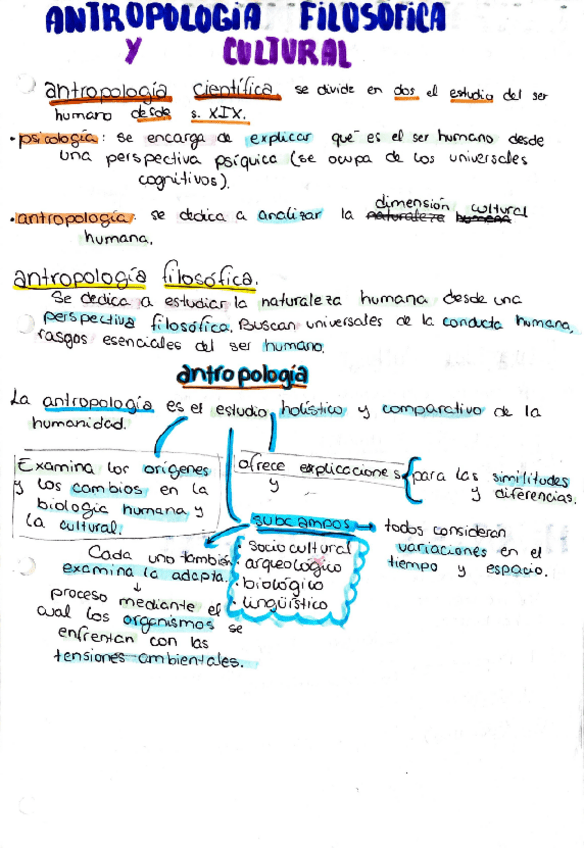 ANTROPOLOGIA FILOSOFICA
Y CULTURAL
antropología científica. se divide en dos el estudio del ser
humano desde s. XIX.
• psicología: se encarga de explicar que es el ser humano desde
una perspectiva psíquica (se ocupa de los universales
cognitivos).
dimensión cultural
• antropología: se dedica a analizar la naturaleza humana
humana.
antropología filosófica.
Se dedica a estudiar la naturaleza humana desde una
perspectiva filosófica. Buscan universales de la conducta humana,
rasgos esenciales del ser humano.
antropología
La antropología es el estudio holístico y comparativo de la
humanidad.
Examina los orígenes
y los cambios en la
biología humana y
la cultural.
ofrece explicaciones
y
para las similitudes
y diferencias.
subcampos → todos consideran
variaciones en el
tiempo y espacio.
• socio cultural
• arqueológico
• biológico
• lingüístico
Cada uno también
examina la adapta.
↓
proceso mediante el
cual los organismos se
enfrentan con las
tensiones ambientales.